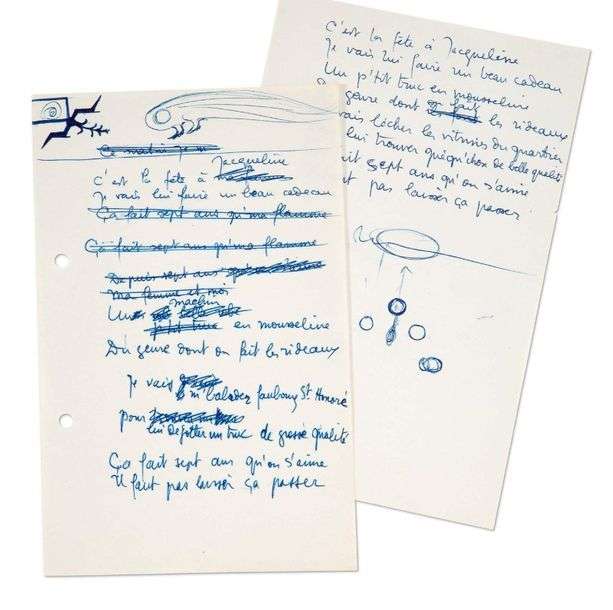 Ce matin je
Jacqueline
C'est la fête à
Je vais lui faire un beau cadeau
Ça fait sept ans qu'ma flamme
Ça fait sept ans qu'ma flamme
Depuis sept ans qu'on s'aime
ma femme et moi
machin
Un
p'tit truc en mousseline
Du genre dont on fait les rideaux
Je vais
m'balader faubourg St Honoré
pour
lui dégotter un truc de grosse qualité
Ça fait sept ans qu'on s'aime
Il faut pas laisser ça passer
C'est la fête à Jacqueline
Je vais lui faire un beau cadeau
Un p'tit truc en mousseline
genre dont fait les rideaux
vais lécher les vitrines du quartier
lui trouver quéqu'chose de belle qualité
fait sept ans qu'on s'aime
pas laisser ça passer